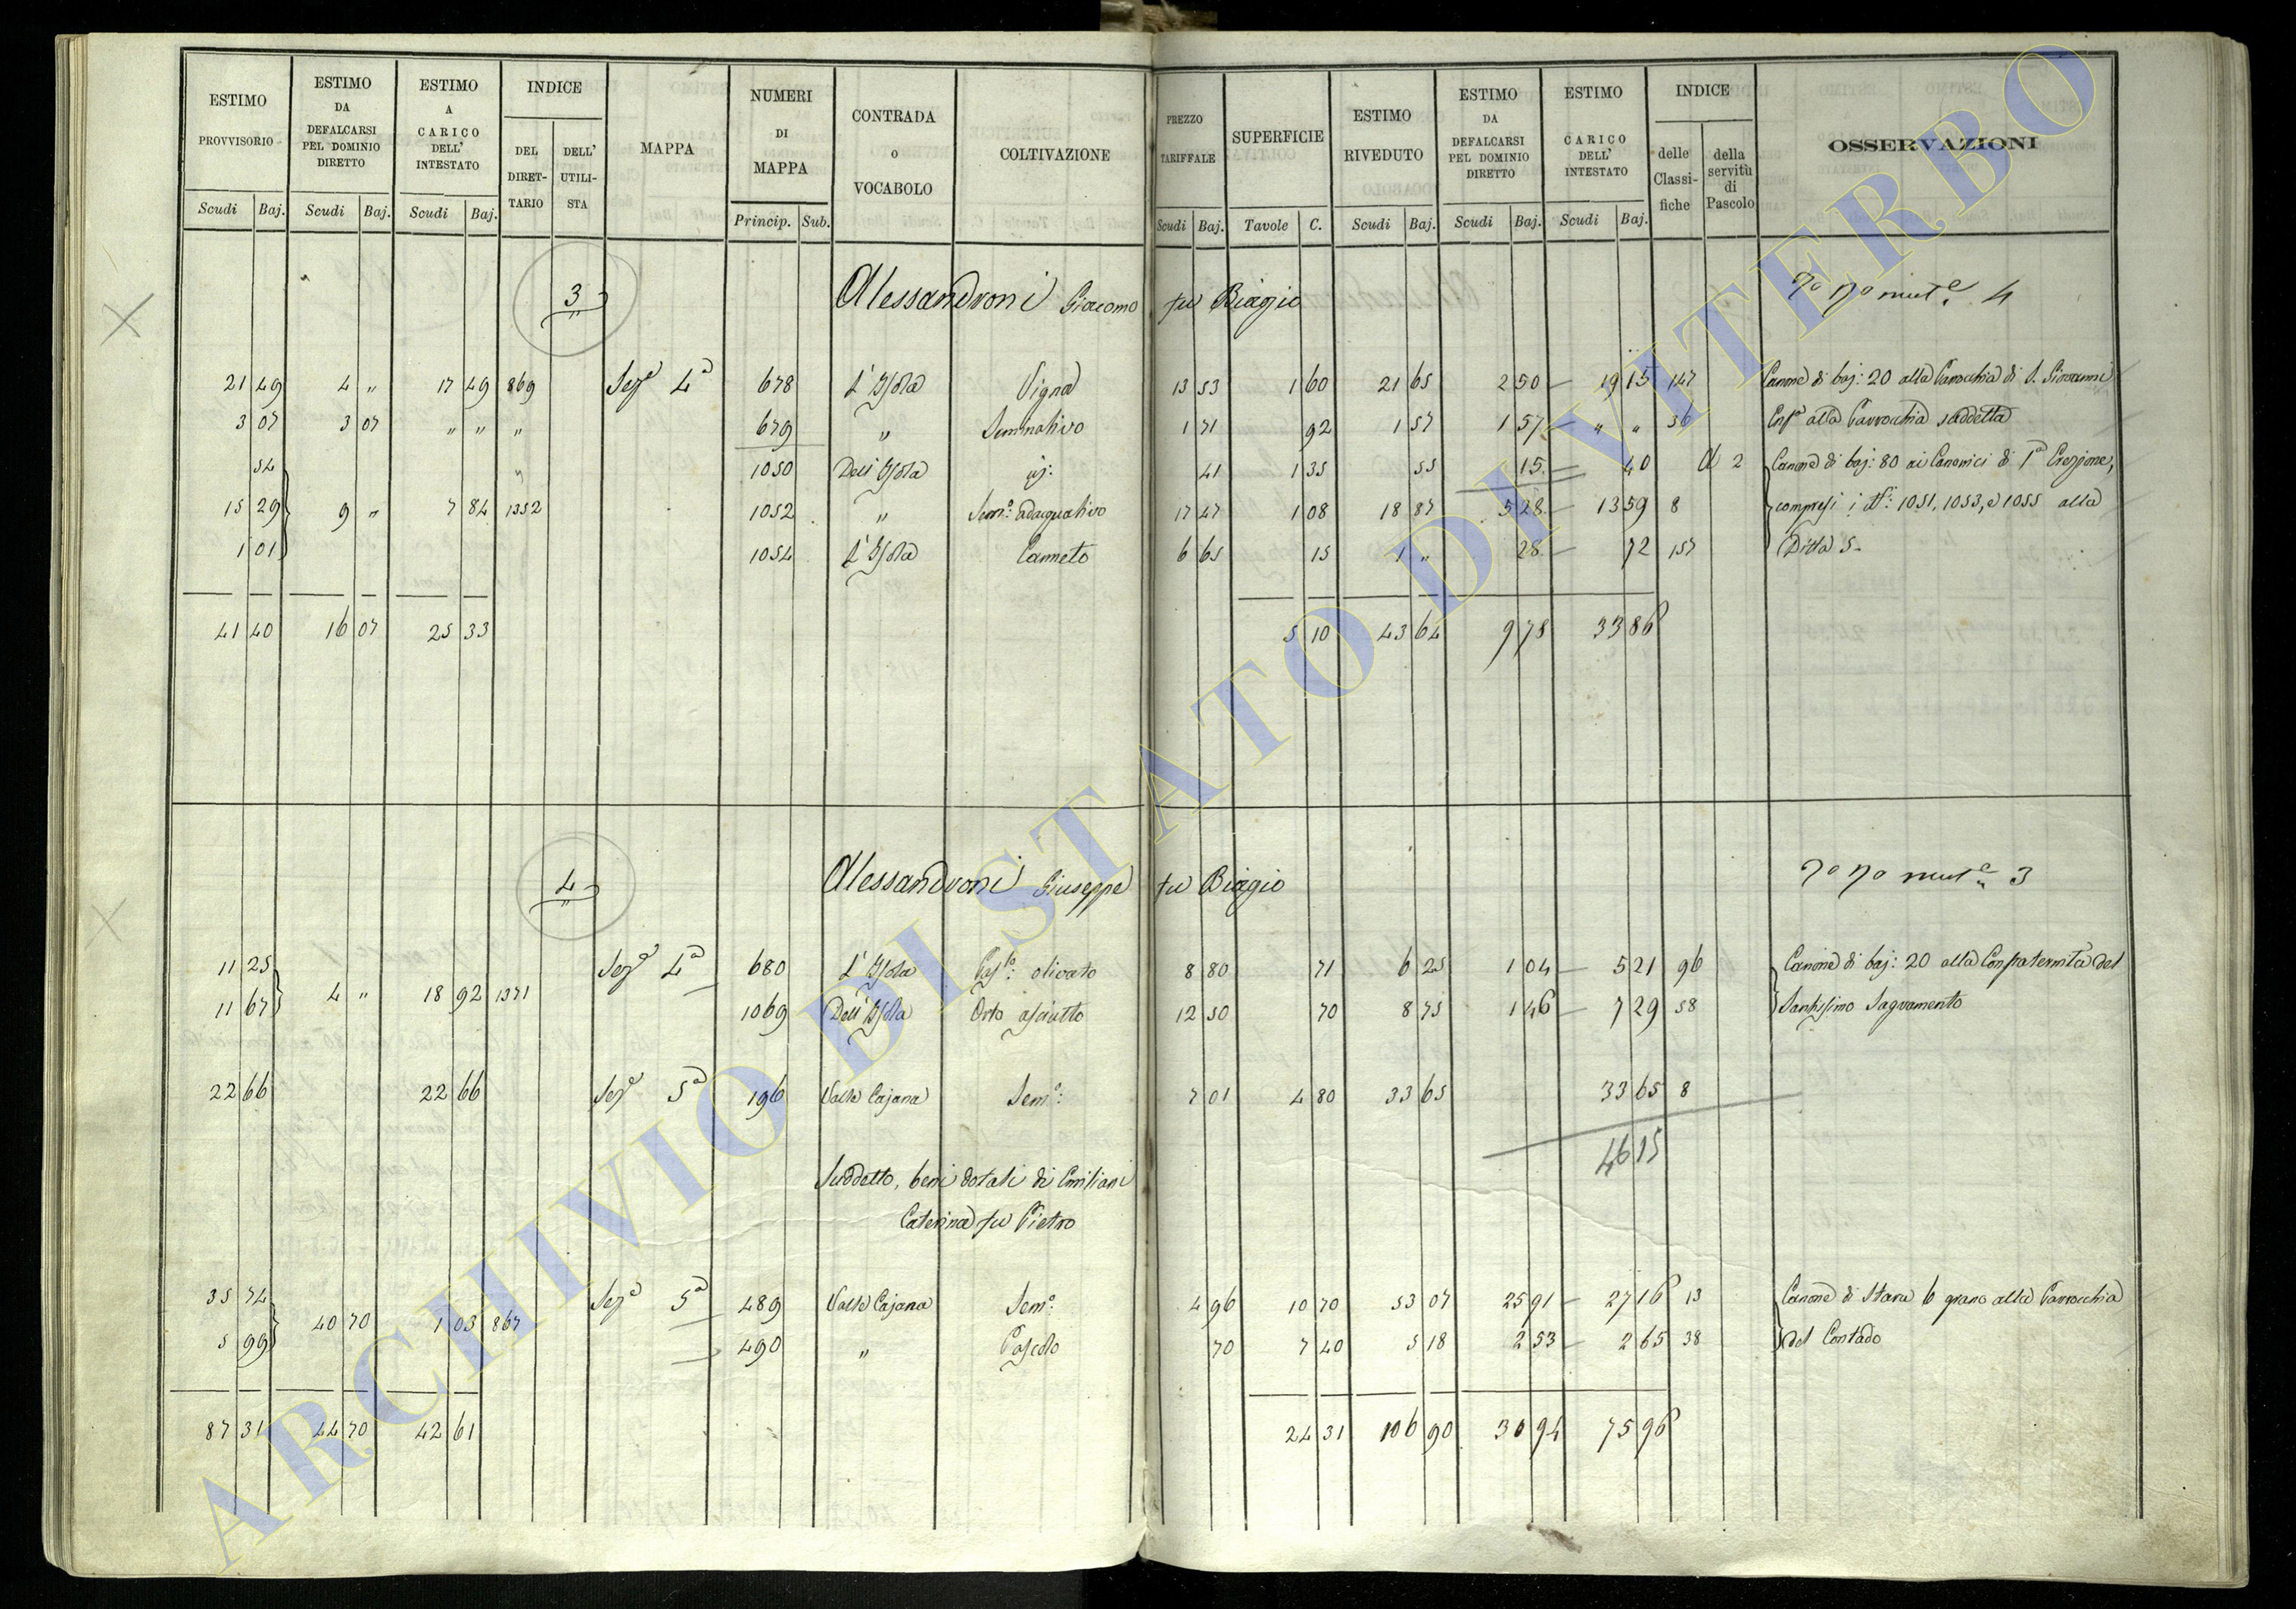 ESTIMO PROVVISORIO Scudi Baj.
ESTIMO DA DEFALCARSI PEL DOMINIO DIRETTO Scudi Baj.
ESTIMO A CARICO DELL' INTESTATO Scudi Baj.
INDICE DEL DIRET- TARIO DELL' UTILI- STA
MAPPA
NUMERI DI MAPPA Princip. Sub.
CONTRADA O VOCABOLO
COLTIVAZIONE
PREZZO TARIFFALE Scudi Baj.
SUPERFICIE Tavole C.
ESTIMO RIVEDUTO Scudi Baj.
ESTIMO DA DEFALCARSI PEL DOMINIO DIRETTO Scudi Baj.
ESTIMO CARICO DELL' INTESTATO Scudi Baj.
INDICE delle Classi- fiche della servitù di Pascolo
OSSERVAZIONI
3 Alessandroni Giacomo fu Biagio 4
21 49 4 " 17 49 869 Sez.e 4a 678 L'Isola Vigna 13 53 1 60 21 65 2 50 19 15 147 Canone di baj: 20 alla Parrocchia di S. Giovanni
3 07 3 07 " " " 679 " Seminativo 1 71 92 1 57 1 57 " " 36 Enf.a alla Parrocchia suddetta
54 " 1050 Dell'Isola id: 41 1 35 55 15 40 A 2 Canone di baj: 80 ai Canonici di 1a Erezione,
15 29 9 " 7 84 1352 1052 " Sem.o adaquativo 17 47 1 08 18 87 5 28 13 59 8 compresi i N.i 1051, 1053, e 1055 alla
1 01 1054 L'Isola Canneto 6 65 15 1 " 28 72 157 Ditta 5
41 40 16 07 25 33 5 10 43 64 9 78 33 86
4 Alessandroni Giuseppe fu Biagio 3
11 25 Sez.e 4a 680 L'Isola Pas.lo olivato 8 80 71 6 25 1 04 5 21 96 Canone di baj: 20 alla Confraternita del
11 67 4 " 18 92 1371 1069 Dell'Isola Orto asciutto 12 50 70 8 75 1 46 7 29 58 Santissimo Sagramento
22 66 22 66 Sez.e 5a 196 Valle Cajana Sem.o 7 01 4 80 33 65 33 65 8
46 15
Suddetto, beni dotali di Emiliani
Caterina fu Pietro
35 74 Sez.e 5a 489 Valle Cajana Sem.o 4 96 10 70 53 07 25 91 27 16 13 Canone di Stara 6 grano alla Parrocchia
5 99 40 70 1 03 867 490 " Pascolo 70 7 40 5 18 2 53 2 65 38 del Contado
87 31 44 70 42 61 24 31 106 90 30 94 75 96
ARCHIVIO DI STATO DI VITERBO